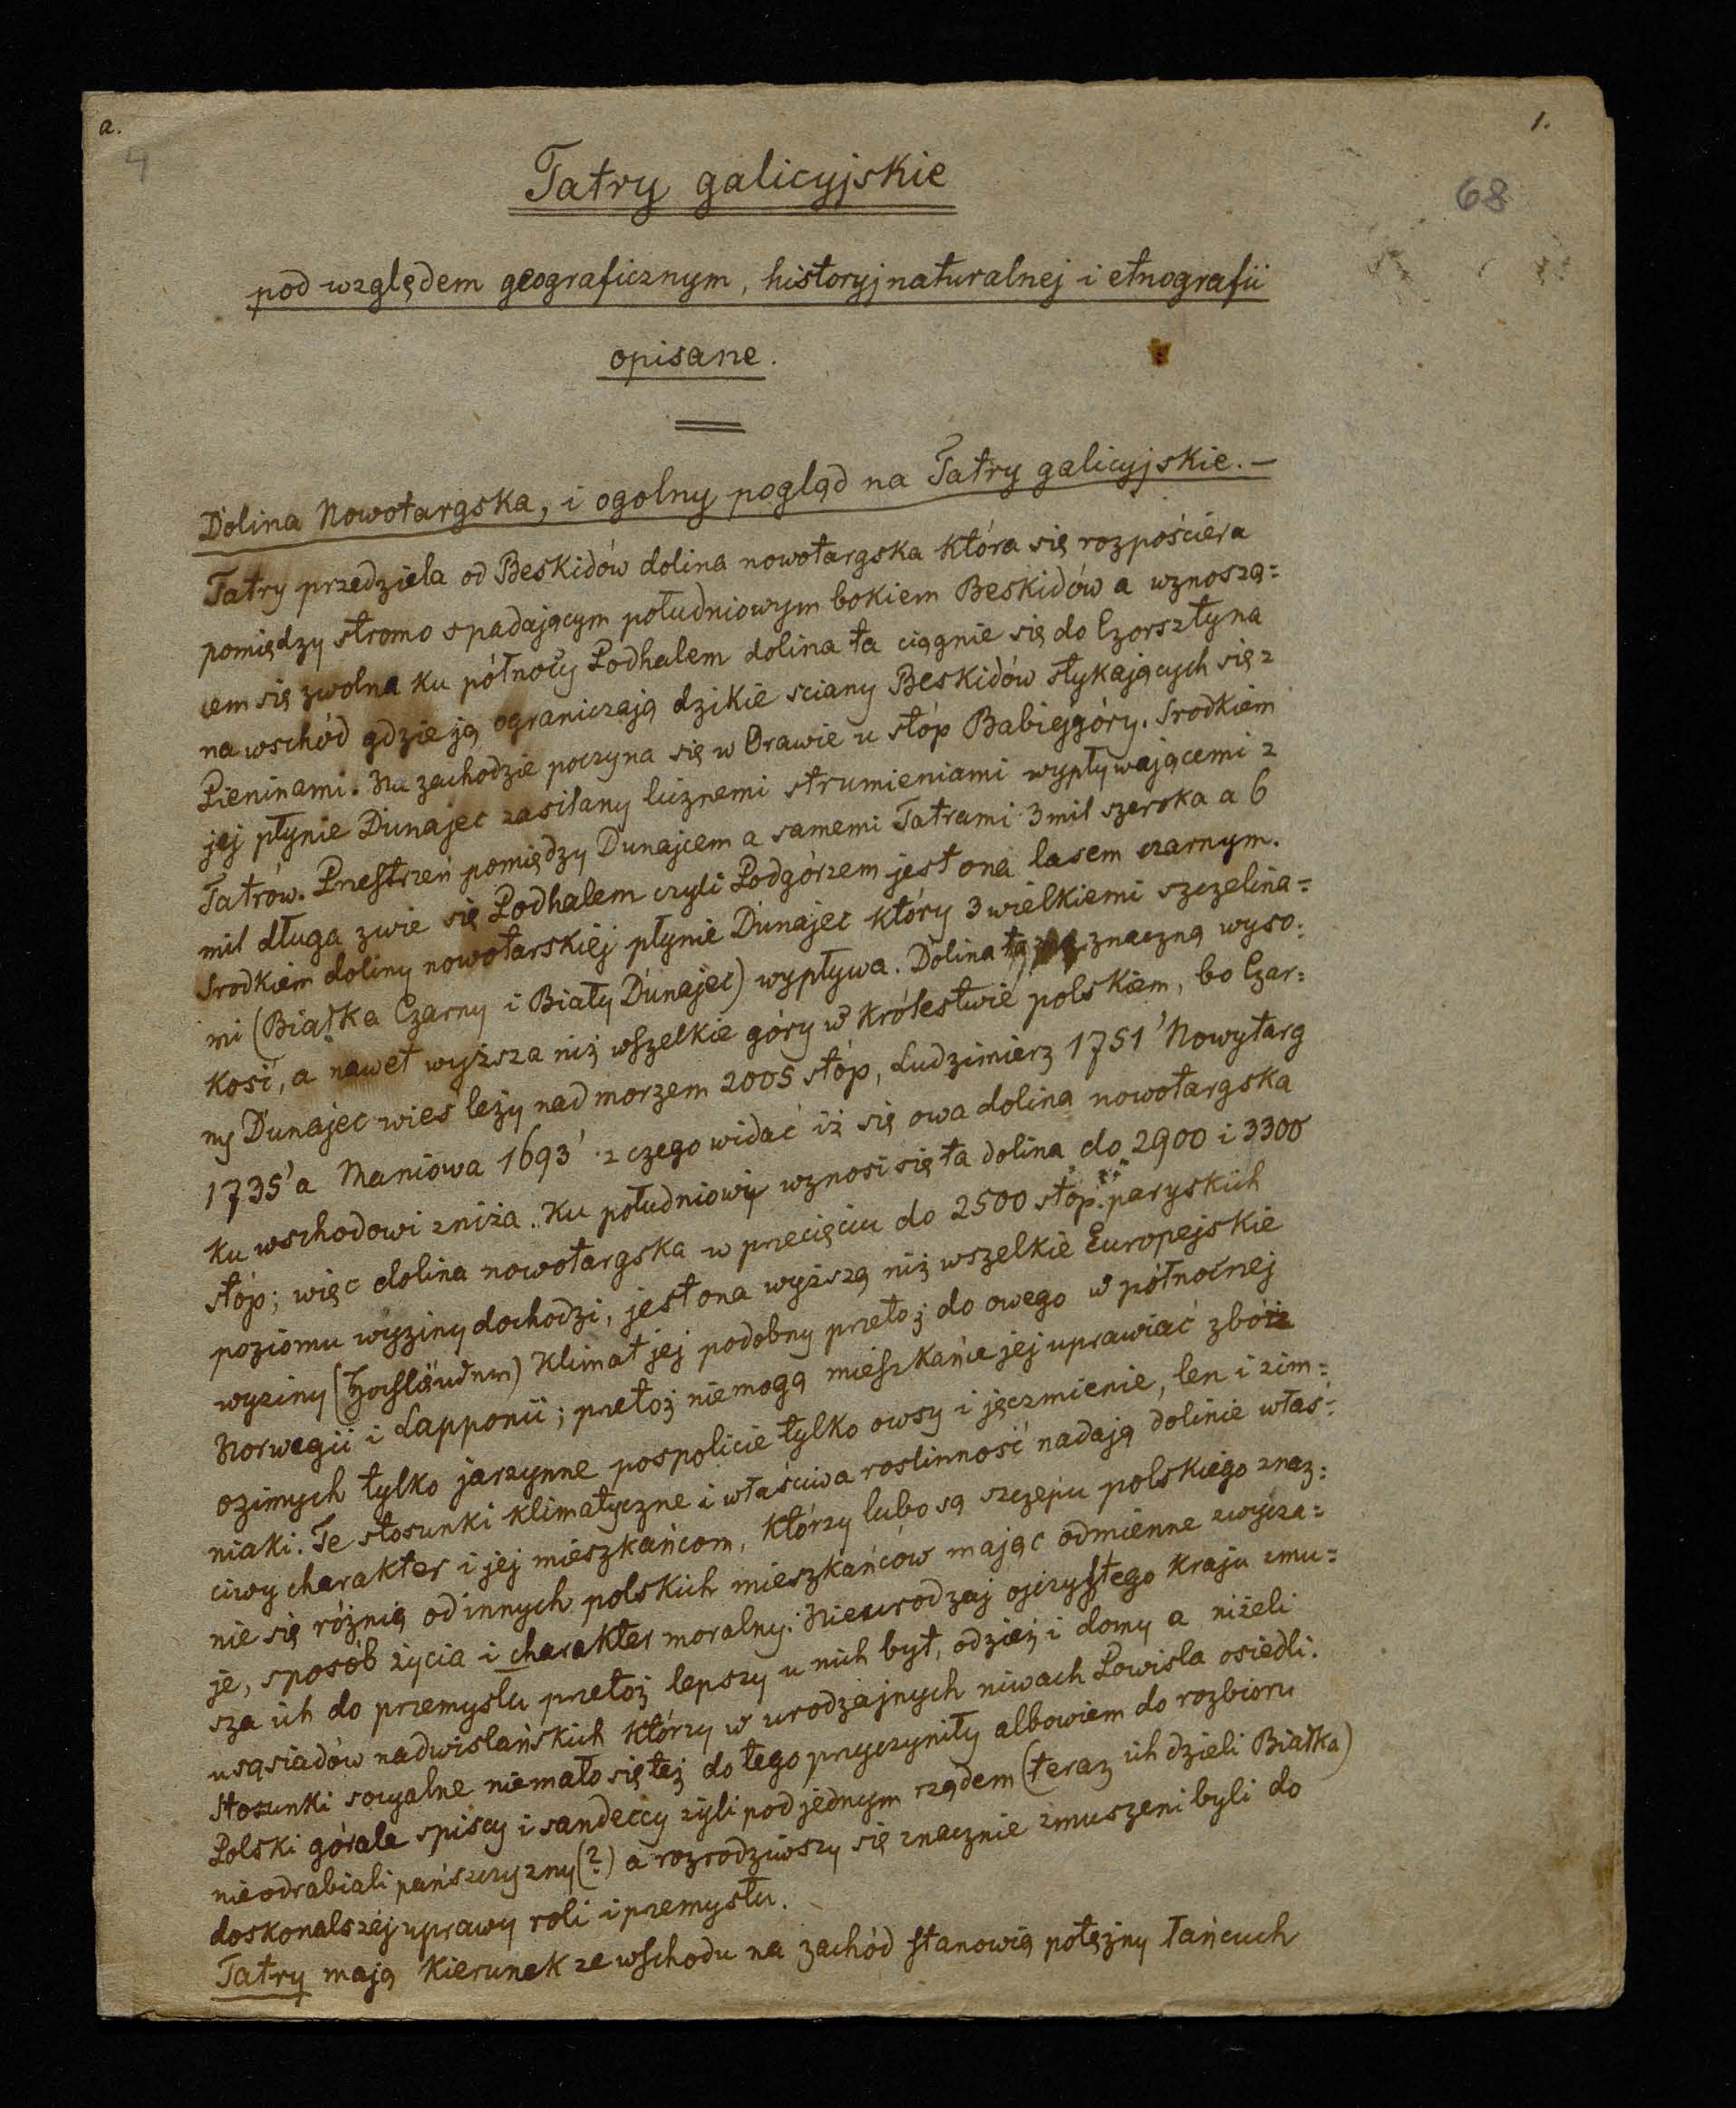 a.
1.
4
68
Tatry galicyjskie
pod względem geograficznym, historyj naturalnej i etnografii
opisane.
Dolina Nowotargska, i ogolny pogląd na Tatry galicyjskie. —
Tatry przedziela od Beskidów dolina nowotargska która się rozpościera
pomiędzy stromo spadającym południowym bokiem Beskidów a wznoszą=
cem się zwolna ku północy Podhalem dolina ta ciągnie się do Czorsztyna
na wschód gdzie ją ograniczają dzikie sciany Beskidów stykających się z
Pieninami. Na zachodzie poczyna się w Orawie u stóp Babiejgóry. Srodkiem
jej płynie Dunajec zasilany licznemi strumieniami wypływającemi z
Tatrów. Przestrzeń pomiędzy Dunajcem a samemi Tatrami 3 mil szeroka a 6
mil długa zwie się Podhalem czyli Podgórzem jest ona lasem czarnym.
Srodkiem doliny nowotarskiej płynie Dunajec który 3 wielkiemi szczelina=
mi (Białka Czarny i Biały Dunajec) wypływa. Dolina ta znaczną wyso=
kość, a nawet wyższa niż wszelkie góry w królestwie polskiem, bo Czar=
ny Dunajec wieś leży nad morzem 2005 stóp, Ludzimierz 1751' Nowytarg
1735' a Maniowa 1693' z czego widać iż się owa dolina nowotargska
ku wschodowi zniża. Ku południowi wznosi się ta dolina do 2900 i 3300
stóp; więc dolina nowotargska w precięciu do 2500 stóp paryskich
poziomu wyziny dochodzi, jest ona wyższą niż wszelkie Europejskie
wyziny (Hochländer) Klimat jej podobny przetoż do owego w północnej
Norwegii i Lapponii; przetoż niemogą mieszkańce jej uprawiać zbóż
ozimych tylko jarzynne pospolicie tylko owsy i jęczmienie, len i zim=
niaki. Te stosunki klimatyczne i właściwa roslinność nadają dolinie właś=
ciwy charakter i jej mieszkańcom, którzy lubo są szczepu polskiego znaz=
nie się różnią od innych polskich mieszkańców mając odmienne zwycza=
je, sposób życia i charakter moralny: Nieurodzaj ojczystego kraju zmu=
sza ich do przemysłu przetoż lepszy u nich byt, odzież i domy a niżeli
u sąsiadów nadwislańskich którzy w urodzajnych niwach Powisla osiedli.
Stosunki socyalne niemało się też do tego przyczyniły albowiem do rozbioru
Polski górale spiscy i sandeccy żyli pod jednym rządem (teraz ich dzieli Białka)
nieodrabiali pańszczyzny (?) a rozrodziwszy się znacznie zmuszeni byli do
doskonalszej uprawy roli i przemysłu.
Tatry mają kierunek ze wschodu na zachód stanowią potężny łańcuch